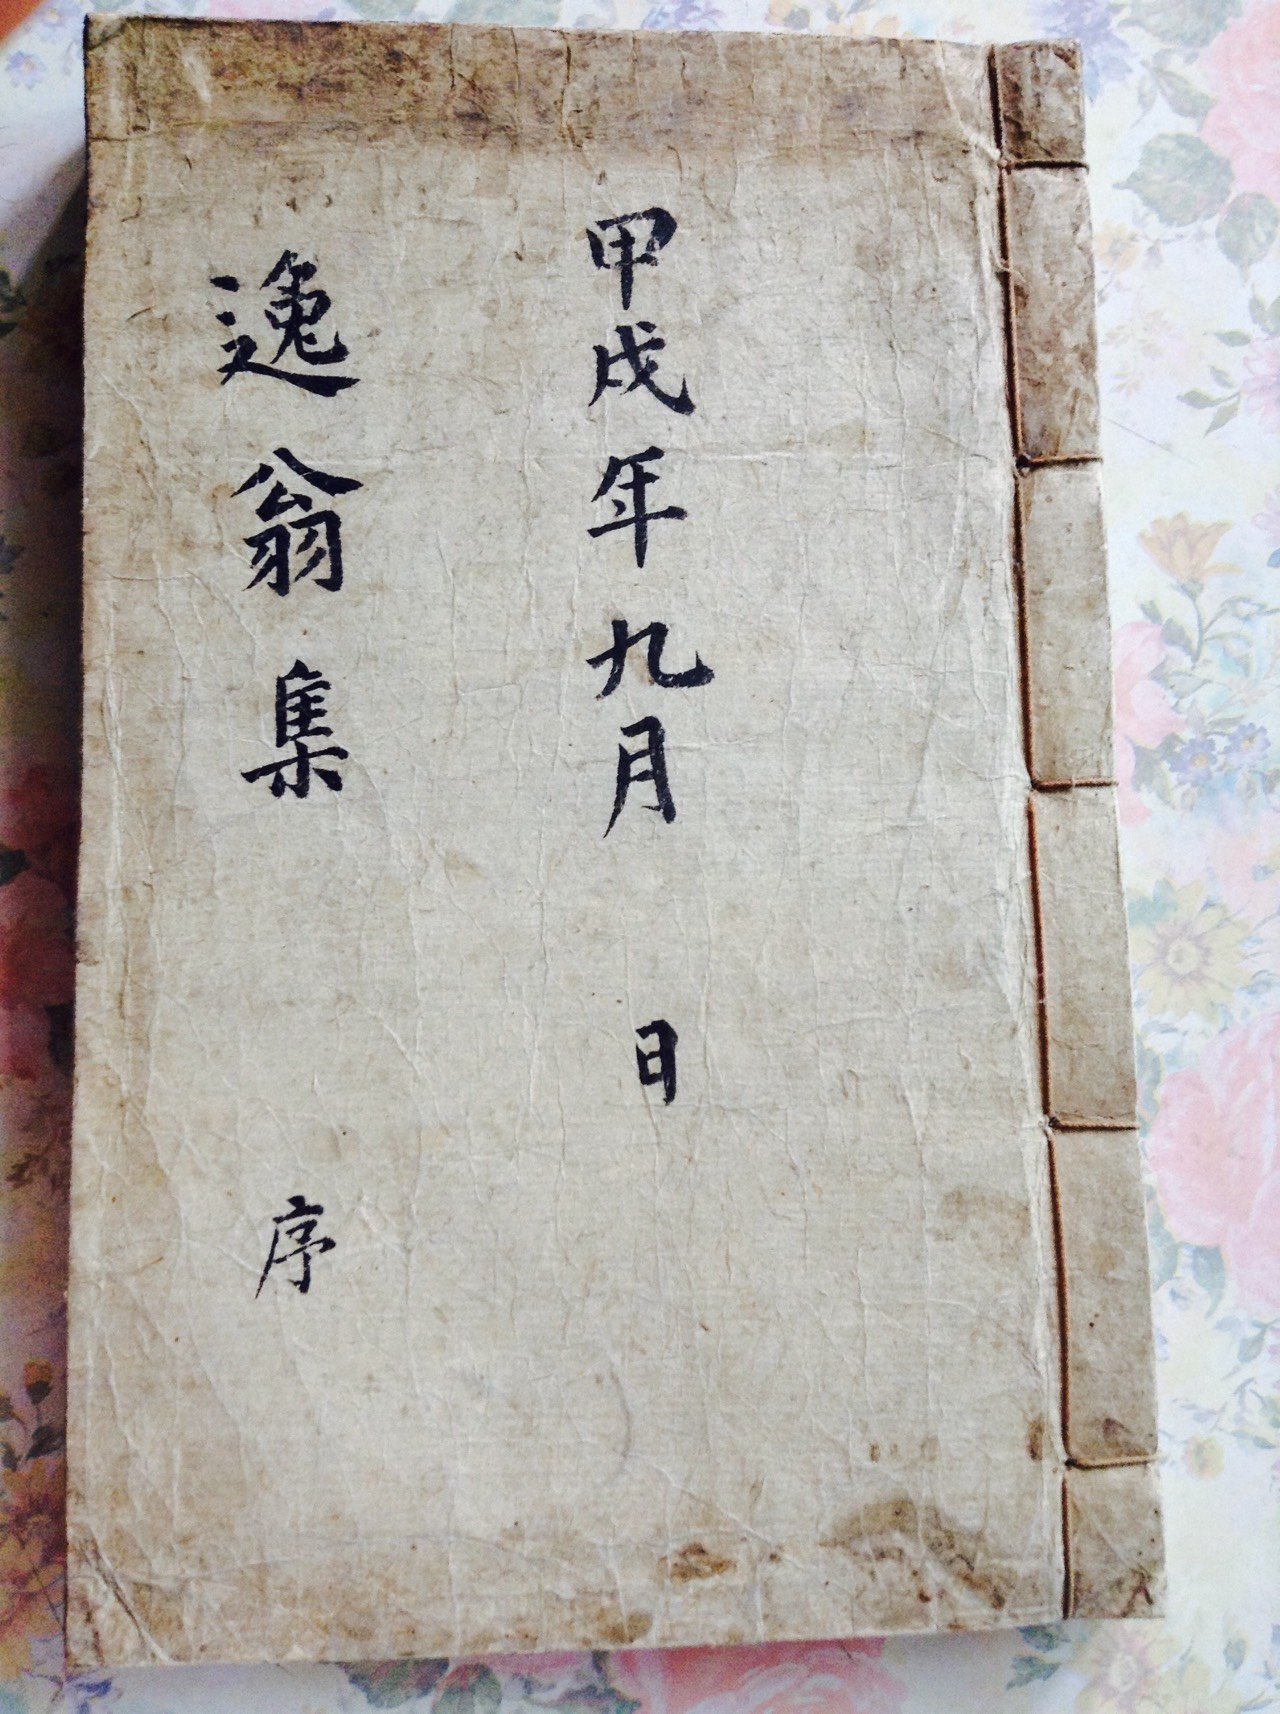 甲戌年九月 日
逸翁集 序